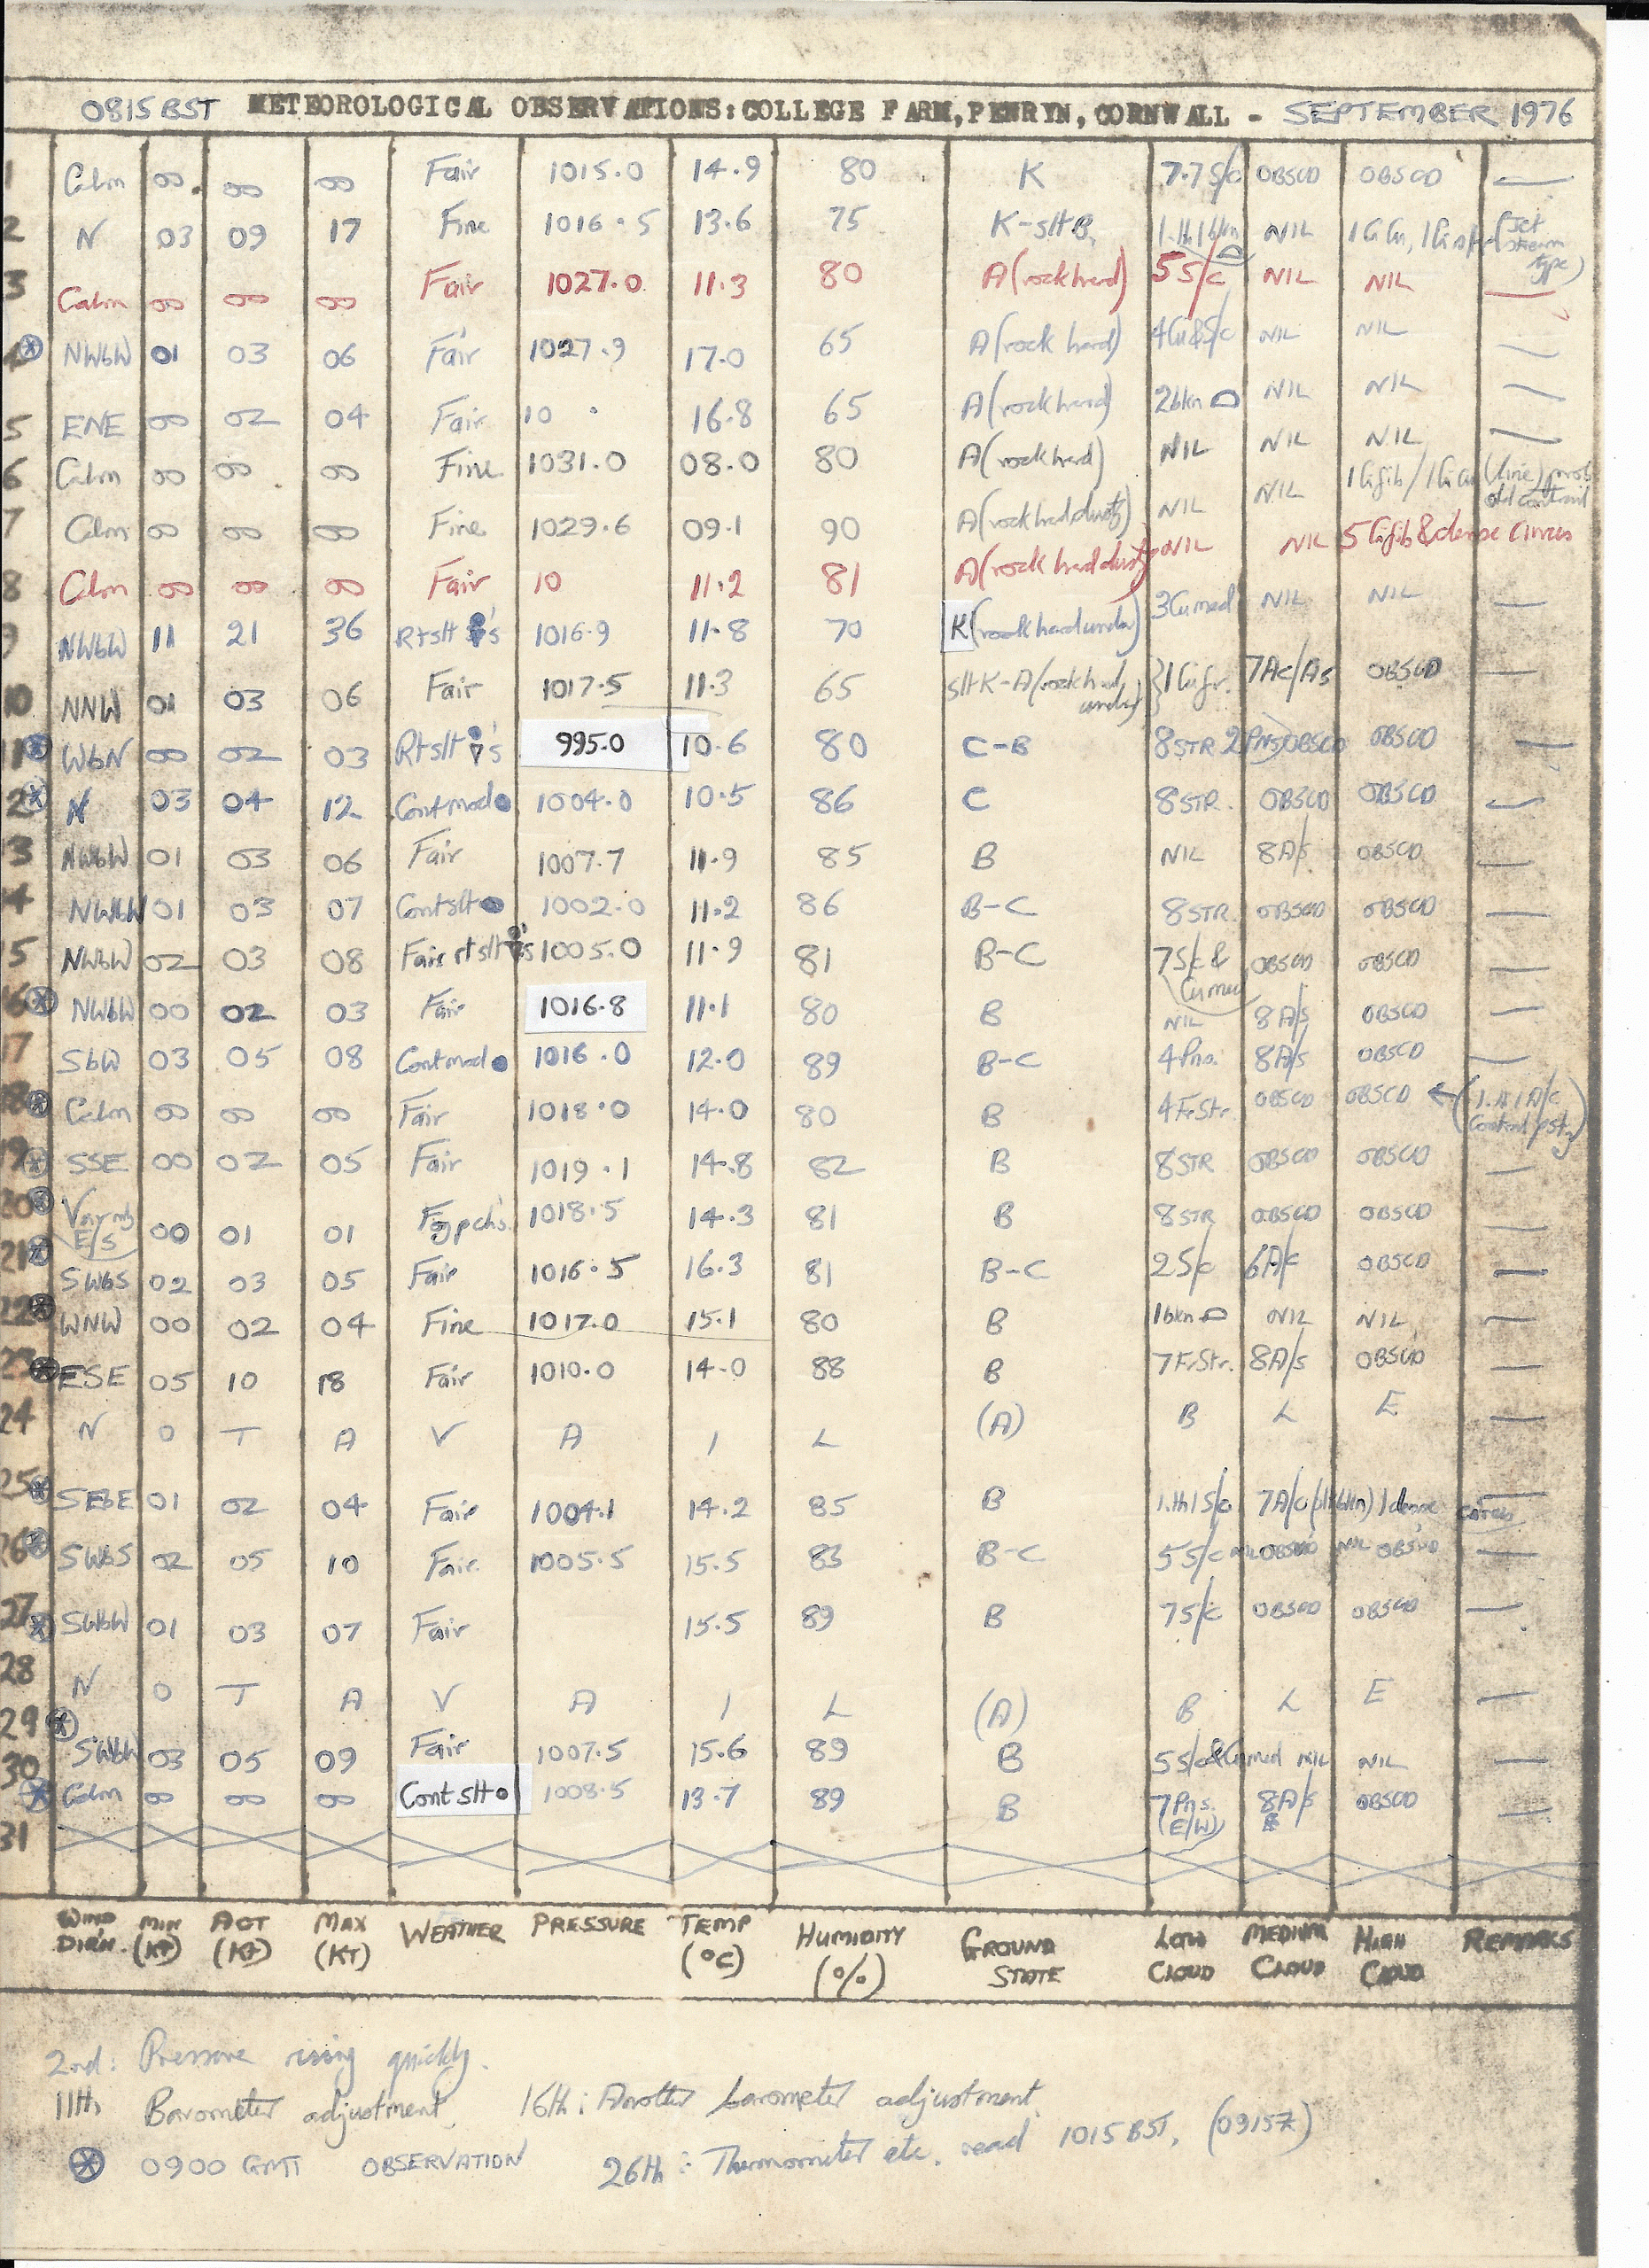 0815 BST METEOROLOGICAL OBSERVATIONS: COLLEGE FARM, PENRYN, CORNWALL - SEPTEMBER 1976
1 Calm 00 00 00 Fair 1015.0 14.9 80 K 7.7 S/c OBSCD OBSCD —
2 N 03 09 17 Fine 1016.5 13.6 75 K-slt B. NIL (Jet stream type)
3 Calm 00 00 00 Fair 1027.0 11.3 80 A (rock hard) 5 S/c NIL NIL —
4 NWbW 01 03 06 Fair 1027.9 17.0 65 A (rock hard) 4Cu&S/c NIL NIL —
5 ENE 00 02 04 Fair 10 . 16.8 65 A (rock hard) 2bkn NIL NIL —
6 Calm 00 00 00 Fine 1031.0 08.0 80 A (rock hard) NIL NIL NIL —
7 Calm 00 00 00 Fine 1029.6 09.1 90 A (rock hard, dusty) NIL NIL 1 Cifib / 1 Ci Cu (line) prob old contrail
8 Calm 00 00 00 Fair 10 11.2 81 A (rock hard dusty) NIL NIL 5 Cifib & dense cirrus
9 NWbW 11 21 36 Rtslt 's 1016.9 11.8 70 K (rock hard under) 3Cumed NIL NIL —
10 NNW 01 03 06 Fair 1017.5 11.3 65 slt K-A (rock hard under) 1 Cufr. 7Ac/As OBSCD —
11 WbN 00 02 03 Rtslt 's 995.0 10.6 80 C-B 8STR 2 PNS OBSCD OBSCD —
12 N 03 04 12 Contmod 1004.0 10.5 86 C 8STR. OBSCD OBSCD —
13 NWbW 01 03 06 Fair 1007.7 11.9 85 B NIL 8A/s OBSCD —
14 NWbW 01 03 07 Contslt 1002.0 11.2 86 B-C 8STR. OBSCD OBSCD —
15 NWbW 02 03 08 Fair rtslt 's 1005.0 11.9 81 B-C 7S/c & Cumed OBSCD OBSCD —
16 NWbW 00 02 03 Fair 1016.8 11.1 80 B NIL 8A/s OBSCD —
17 SbW 03 05 08 Contmod 1016.0 12.0 89 B-C 4Pns. 8A/s OBSCD —
18 Calm 00 00 00 Fair 1018.0 14.0 80 B 4FrStr. OBSCD OBSCD ←
19 SSE 00 02 05 Fair 1019.1 14.8 82 B 8STR OBSCD OBSCD —
20 E/S 00 01 01 Fogpch's. 1018.5 14.3 81 B 8STR OBSCD OBSCD —
21 SWbS 02 03 05 Fair 1016.5 16.3 81 B-C 2S/c 6A/c OBSCD —
22 WNW 00 02 04 Fine 1017.0 15.1 80 B 1bkn NIL NIL —
23 ESE 05 10 18 Fair 1010.0 14.0 88 B 7FrStr. 8A/s OBSCD —
24 N O T A V A I L (A) B L E —
25 SEbE 01 02 04 Fair 1004.1 14.2 85 B 1.th1S/c 7A/c 1dense cirrus
26 SWbS 02 05 10 Fair. 1005.5 15.5 83 B-C 5S/c OBSCD NIL OBSCD —
27 SWbW 01 03 07 Fair 15.5 89 B 7S/c OBSCD OBSCD —
28 N O T A V A I L (A) B L E —
29 SWbW 03 05 09 Fair 1007.5 15.6 89 B 5S/c&Cumed NIL NIL —
30 Calm 00 00 00 Cont slt 1008.5 13.7 89 B 7Pns. (E/W) 8A/s OBSCD —
31
WIND DIR'N. MIN (KT) ACT (KT) MAX (KT) WEATHER PRESSURE TEMP (°C) HUMIDITY (%) GROUND STATE LOW CLOUD MEDIUM CLOUD HIGH CLOUD REMARKS
2nd: Pressure rising quickly.
11th Barometer adjustment. 16th: Another barometer adjustment.
0900 GMT OBSERVATION 26th: Thermometer etc. read 1015 BST. (0915Z)